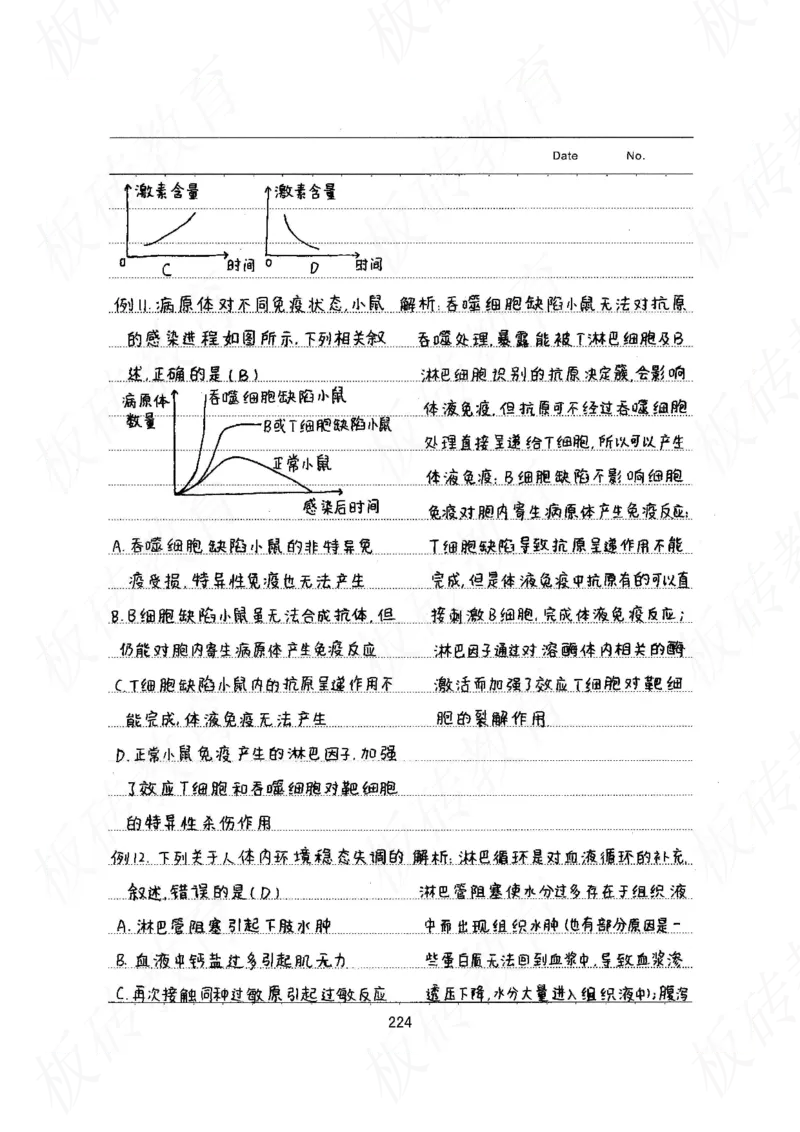 Date No.
激素含量
0 C 时间
激素含量
0 D 时间
例11.病原体对不同免疫状态,小鼠
的感染进程如图所示,下列相关叙
述,正确的是(B)
病原体
数量
吞噬细胞缺陷小鼠
B或T细胞缺陷小鼠
正常小鼠
感染后时间
A.吞噬细胞缺陷小鼠的非特异免
疫受损,特异性免疫也无法产生
B.B细胞缺陷小鼠虽无法合成抗体,但
仍能对胞内寄生病原体产生免疫反应
C.T细胞缺陷小鼠内的抗原呈递作用不
能完成,体液免疫无法产生
D.正常小鼠免疫产生的淋巴因子,加强
了效应T细胞和吞噬细胞对靶细胞
的特异性杀伤作用
解析:吞噬细胞缺陷小鼠无法对抗原
吞噬处理,暴露能被T淋巴细胞及B
淋巴细胞识别的抗原决定簇,会影响
体液免疫,但抗原可不经过吞噬细胞
处理直接呈递给T细胞,所以可以产生
体液免疫;B细胞缺陷不影响细胞
免疫对胞内寄生病原体产生免疫反应;
T细胞缺陷导致抗原呈递作用不能
完成,但是体液免疫中抗原有的可以直
接刺激B细胞,完成体液免疫反应;
淋巴因子通过对溶酶体内相关的酶
激活而加强了效应T细胞对靶细
胞的裂解作用
例12.下列关于人体内环境稳态失调的
叙述,错误的是(D)
A.淋巴管阻塞引起下肢水肿
B.血液中钙盐过多引起肌无力
C.再次接触同种过敏原引起过敏反应
解析:淋巴循环是对血液循环的补充,
淋巴管阻塞使水分过多存在于组织液
中而出现组织水肿(也有部分原因是一
些蛋白质无法回到血浆中,导致血浆渗
透压下降,水分大量进入组织液中);腹泻
224
板砖教育